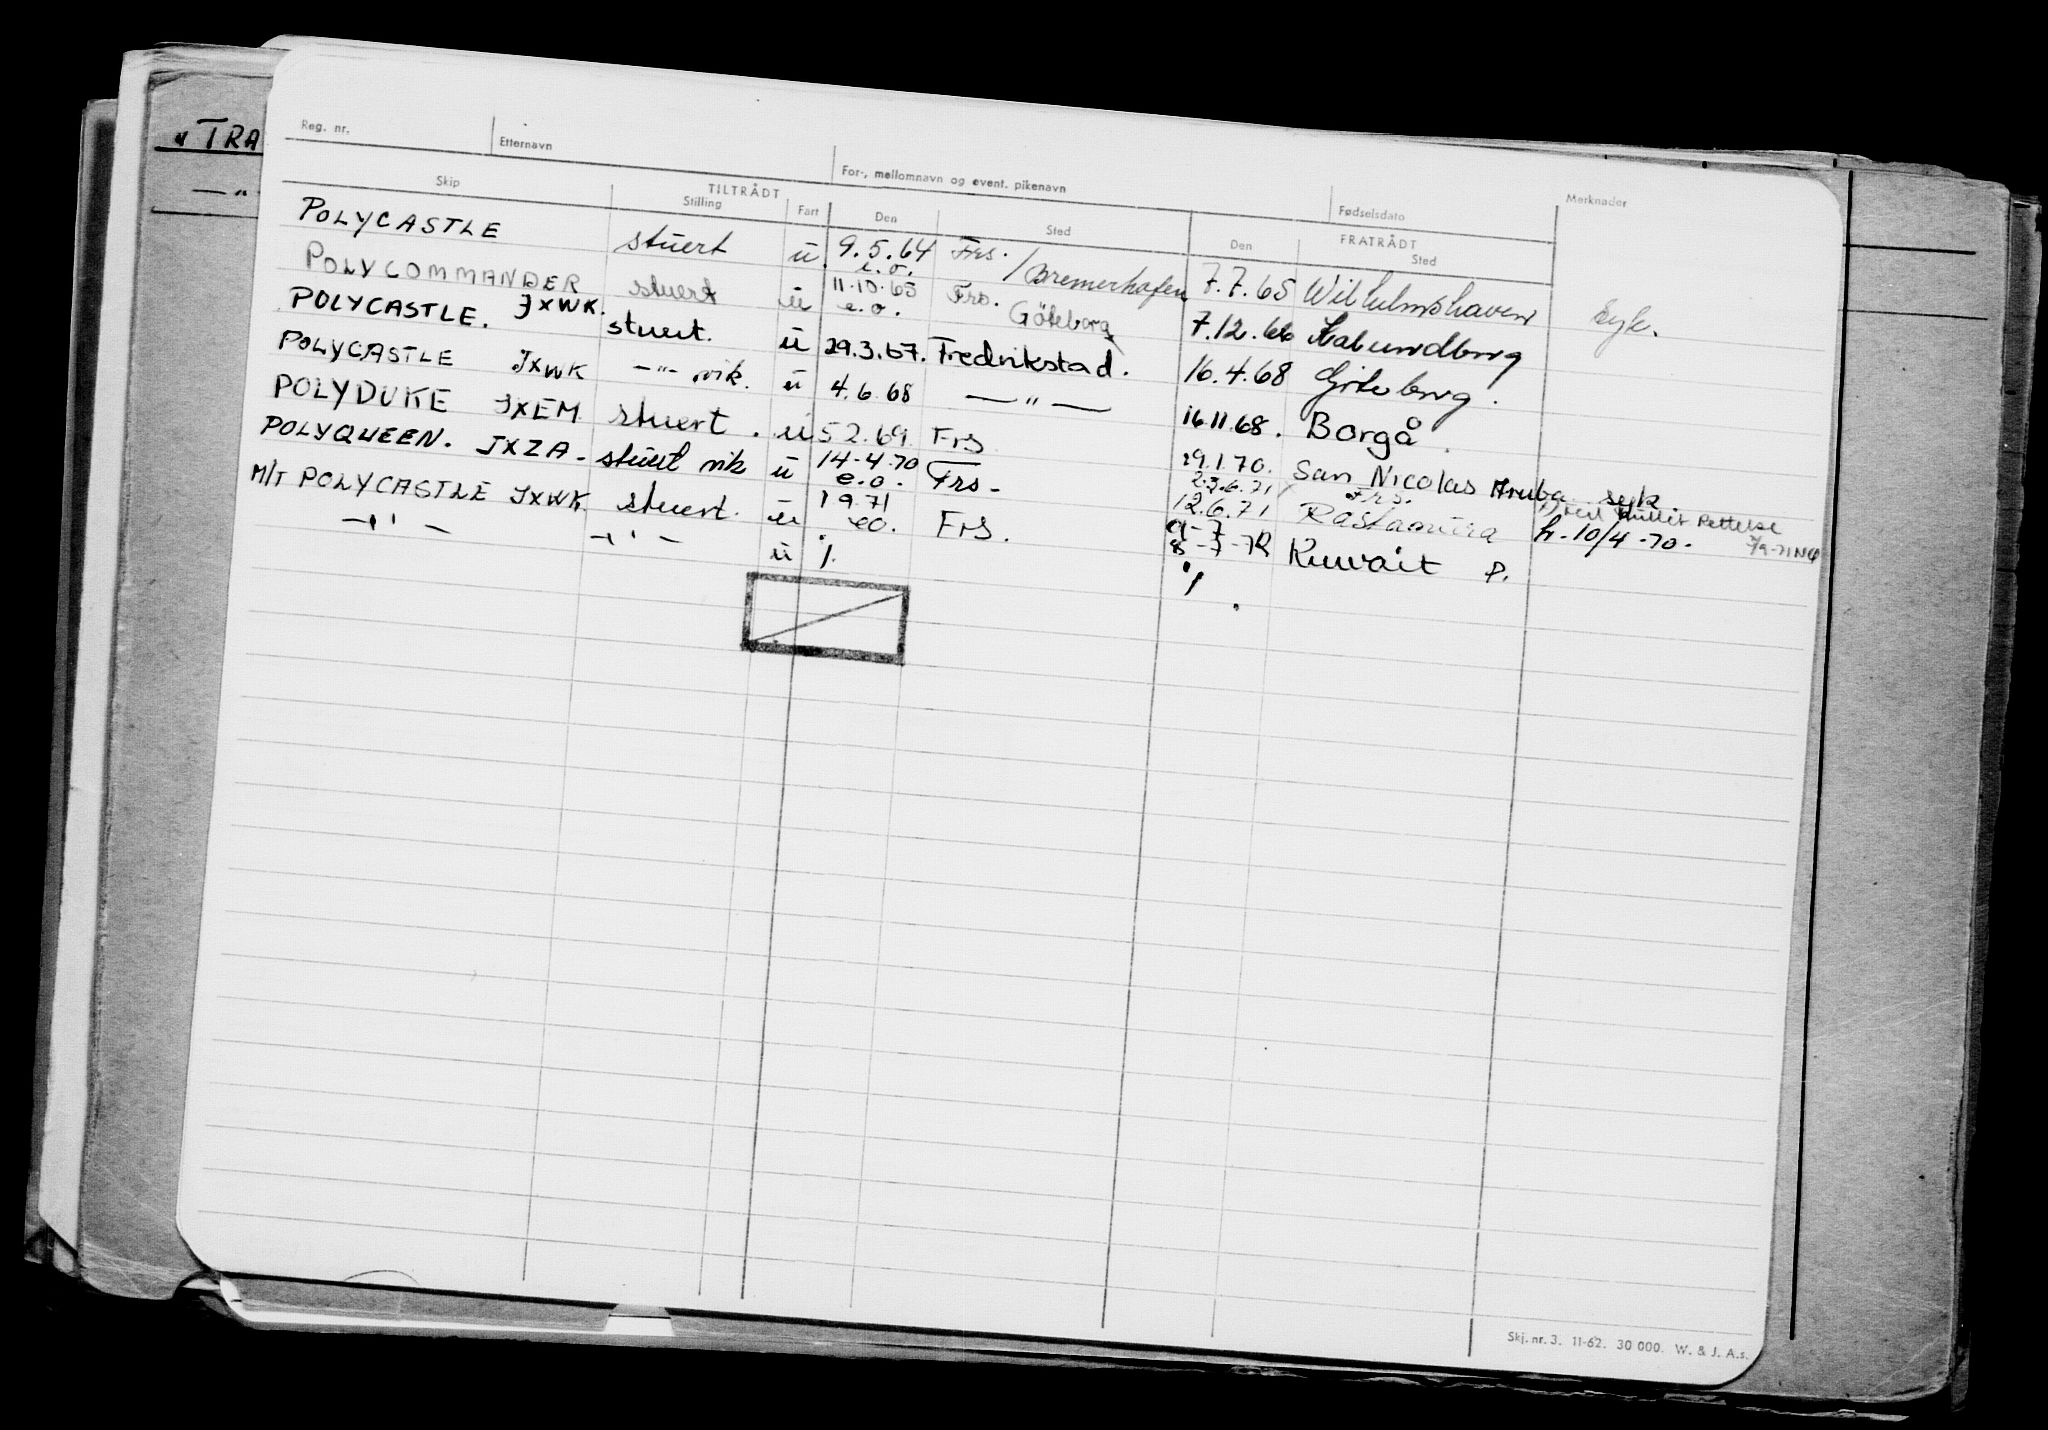 TRA
Reg. nr. Etternavn For-, mellomnavn og event. pikenavn Fødselsdato Merknader
TILTRÅDT FRATRÅDT
Skip Stilling Fart Den Sted Den Sted
POLYCASTLE stuert u 9.5.64 e.o. Frs. / Bremerhafen 7.7.65 Wilhelmshaven syk.
POLYCOMMANDER stuert u 11.10.65 e.o. Frs. Göteborg 7.12.66 Kalundborg
POLYCASTLE. JXWK. stuert. u 29.3.67. Fredrikstad. 16.4.68 Göteborg.
POLYCASTLE JXWK —"— vik. u 4.6.68 —"— 16.11.68. Borgå.
POLYDUKE JXEM stuert. u 5 2.69 Frs 29.1.70. San Nicolas Aruba syk
POLYQUEEN. JXZA - stuert vik u 14-4.70 e.o. Frs - 2.3.6.71 Frs. 12.6.71 Rastanura h. 10/4 -70. Rettelse
M/T POLYCASTLE JXWK stuert. u 1 9.71 eo. Frs. 8-7-72 Kuwait P.
—"— —"— u %. %.
Skj. nr. 3. 11-62. 30 000. W. & J. A.s.